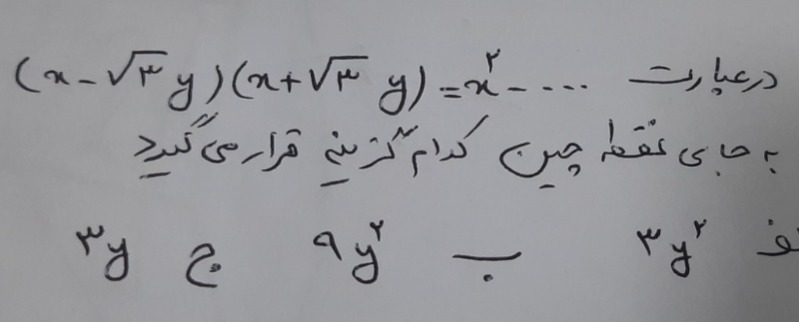 در عبارت (x-√۳ y)(x+√۳ y)=x²- ....
به جای نقطه چین کدام گزینه قرار می گیرد
لف ۳y² ب ۹y² ج ۳y